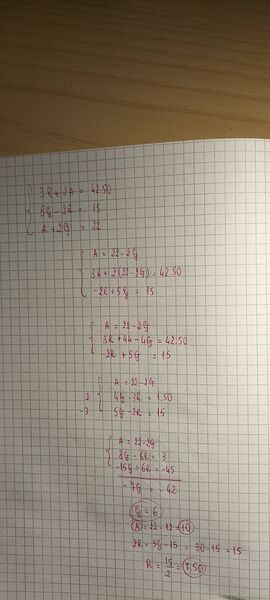 3R + 2A = 42.50
5G - 2R = 15
A + 2G = 22
A = 22 - 2G
3R + 2(22 - 2G) = 42.50
-2R + 5G = 15
A = 22 - 2G
3R + 44 - 4G = 42.50
-2R + 5G = 15
A = 22 - 2G
2 4G - 3R = 1.50
-3 5G - 2R = 15
A = 22 - 2G
8G - 6R = 3
-15G + 6R = -45
-7G = -42
G = 6
A = 22 - 12 = 10
2R = 5G - 15 = 30 - 15 = 15
R = 15/2 = 7.50